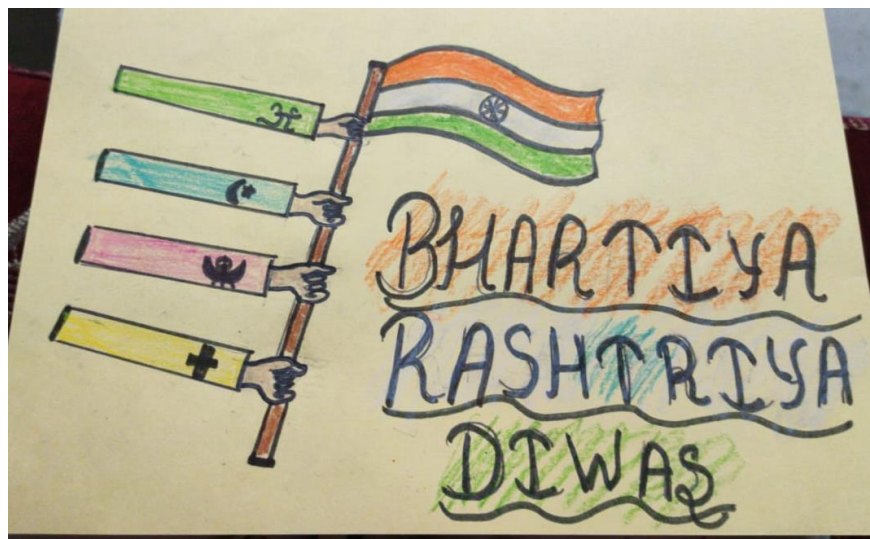 ॐ
BHARTIYA
RASHTRIYA
DIWAS